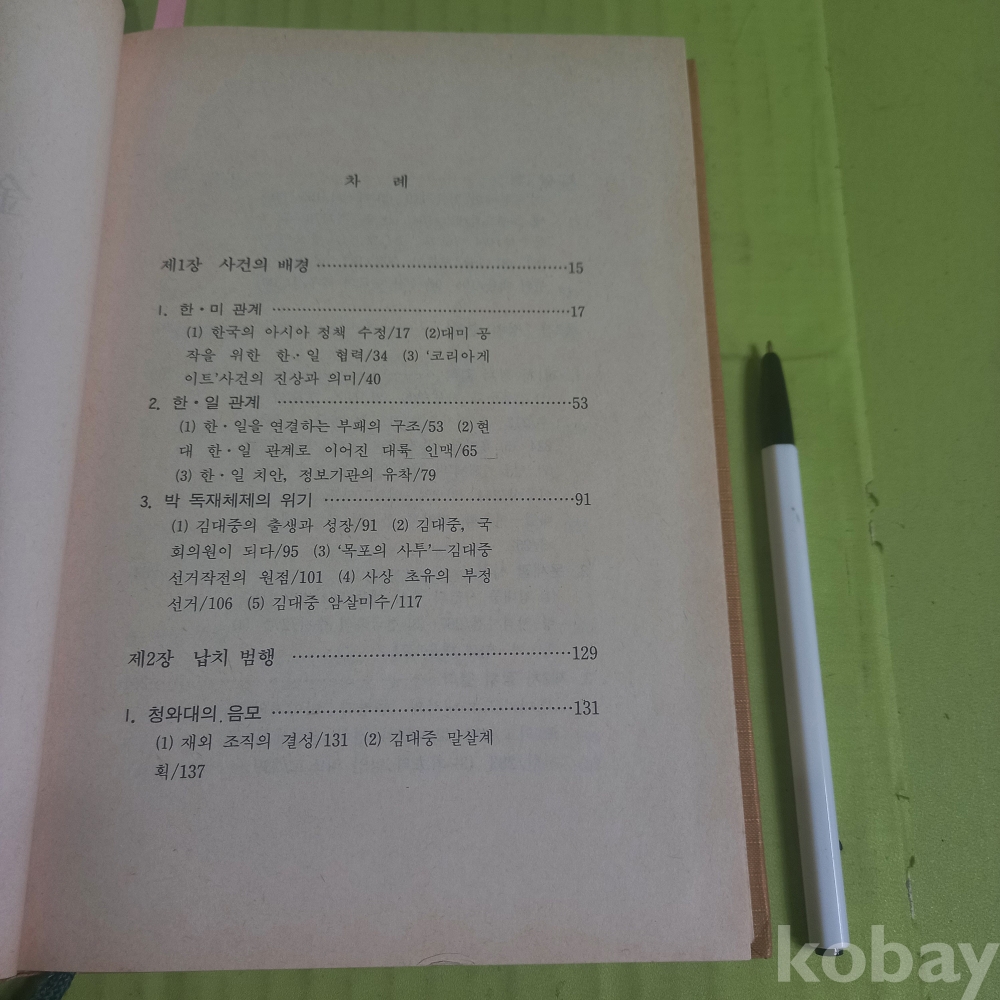 차 례
제1장 사건의 배경 ……………………………………15
1. 한·미 관계 ……………………………………17
(1) 한국의 아시아 정책 수정/17 (2)대미 공
작을 위한 한·일 협력/34 (3) ‘코리아게
이트’사건의 진상과 의미/40
2. 한·일 관계 ……………………………………53
(1) 한·일을 연결하는 부패의 구조/53 (2)현
대 한·일 관계로 이어진 대륙 인맥/65
(3) 한·일 치안, 정보기관의 유착/79
3. 박 독재체제의 위기 ……………………………………91
(1) 김대중의 출생과 성장/91 (2) 김대중, 국
회의원이 되다/95 (3) ‘목포의 사투’—김대중
선거작전의 원점/101 (4) 사상 초유의 부정
선거/106 (5) 김대중 암살미수/117
제2장 납치 범행 ……………………………………129
1. 청와대의 음모 ……………………………………131
(1) 재외 조직의 결성/131 (2) 김대중 말살계
획/137
kobay